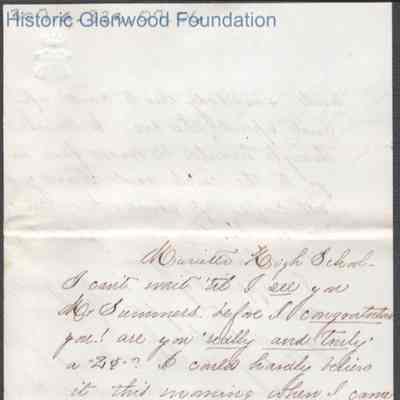 Historic Glenwood Foundation
Marietta High School-
I can't wait 'til I see you
Mr Summers before I congratulate
you! are you "really and truly"
a -25-? I could hardly believe
it this morning when I came